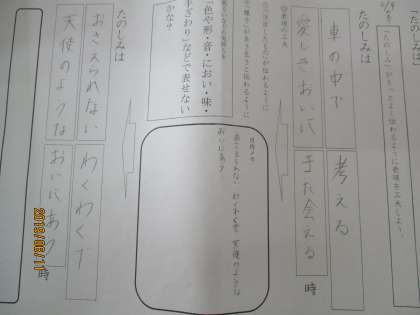 「たのしみは
6/9
「たのしみ」がもっとよく伝わるように表現を工夫しよう。
たのしみは
車の中で 考える
愛しきおいに また会える 時
表現の工夫
「色や形・音・におい・味・
手ざわり」などで表せない
かな?
おさえられない わくわくて 天使のような
おいにあう
たのしみは
おさえられない わくわくて
天使のような おいにあう 時
2019/06/11